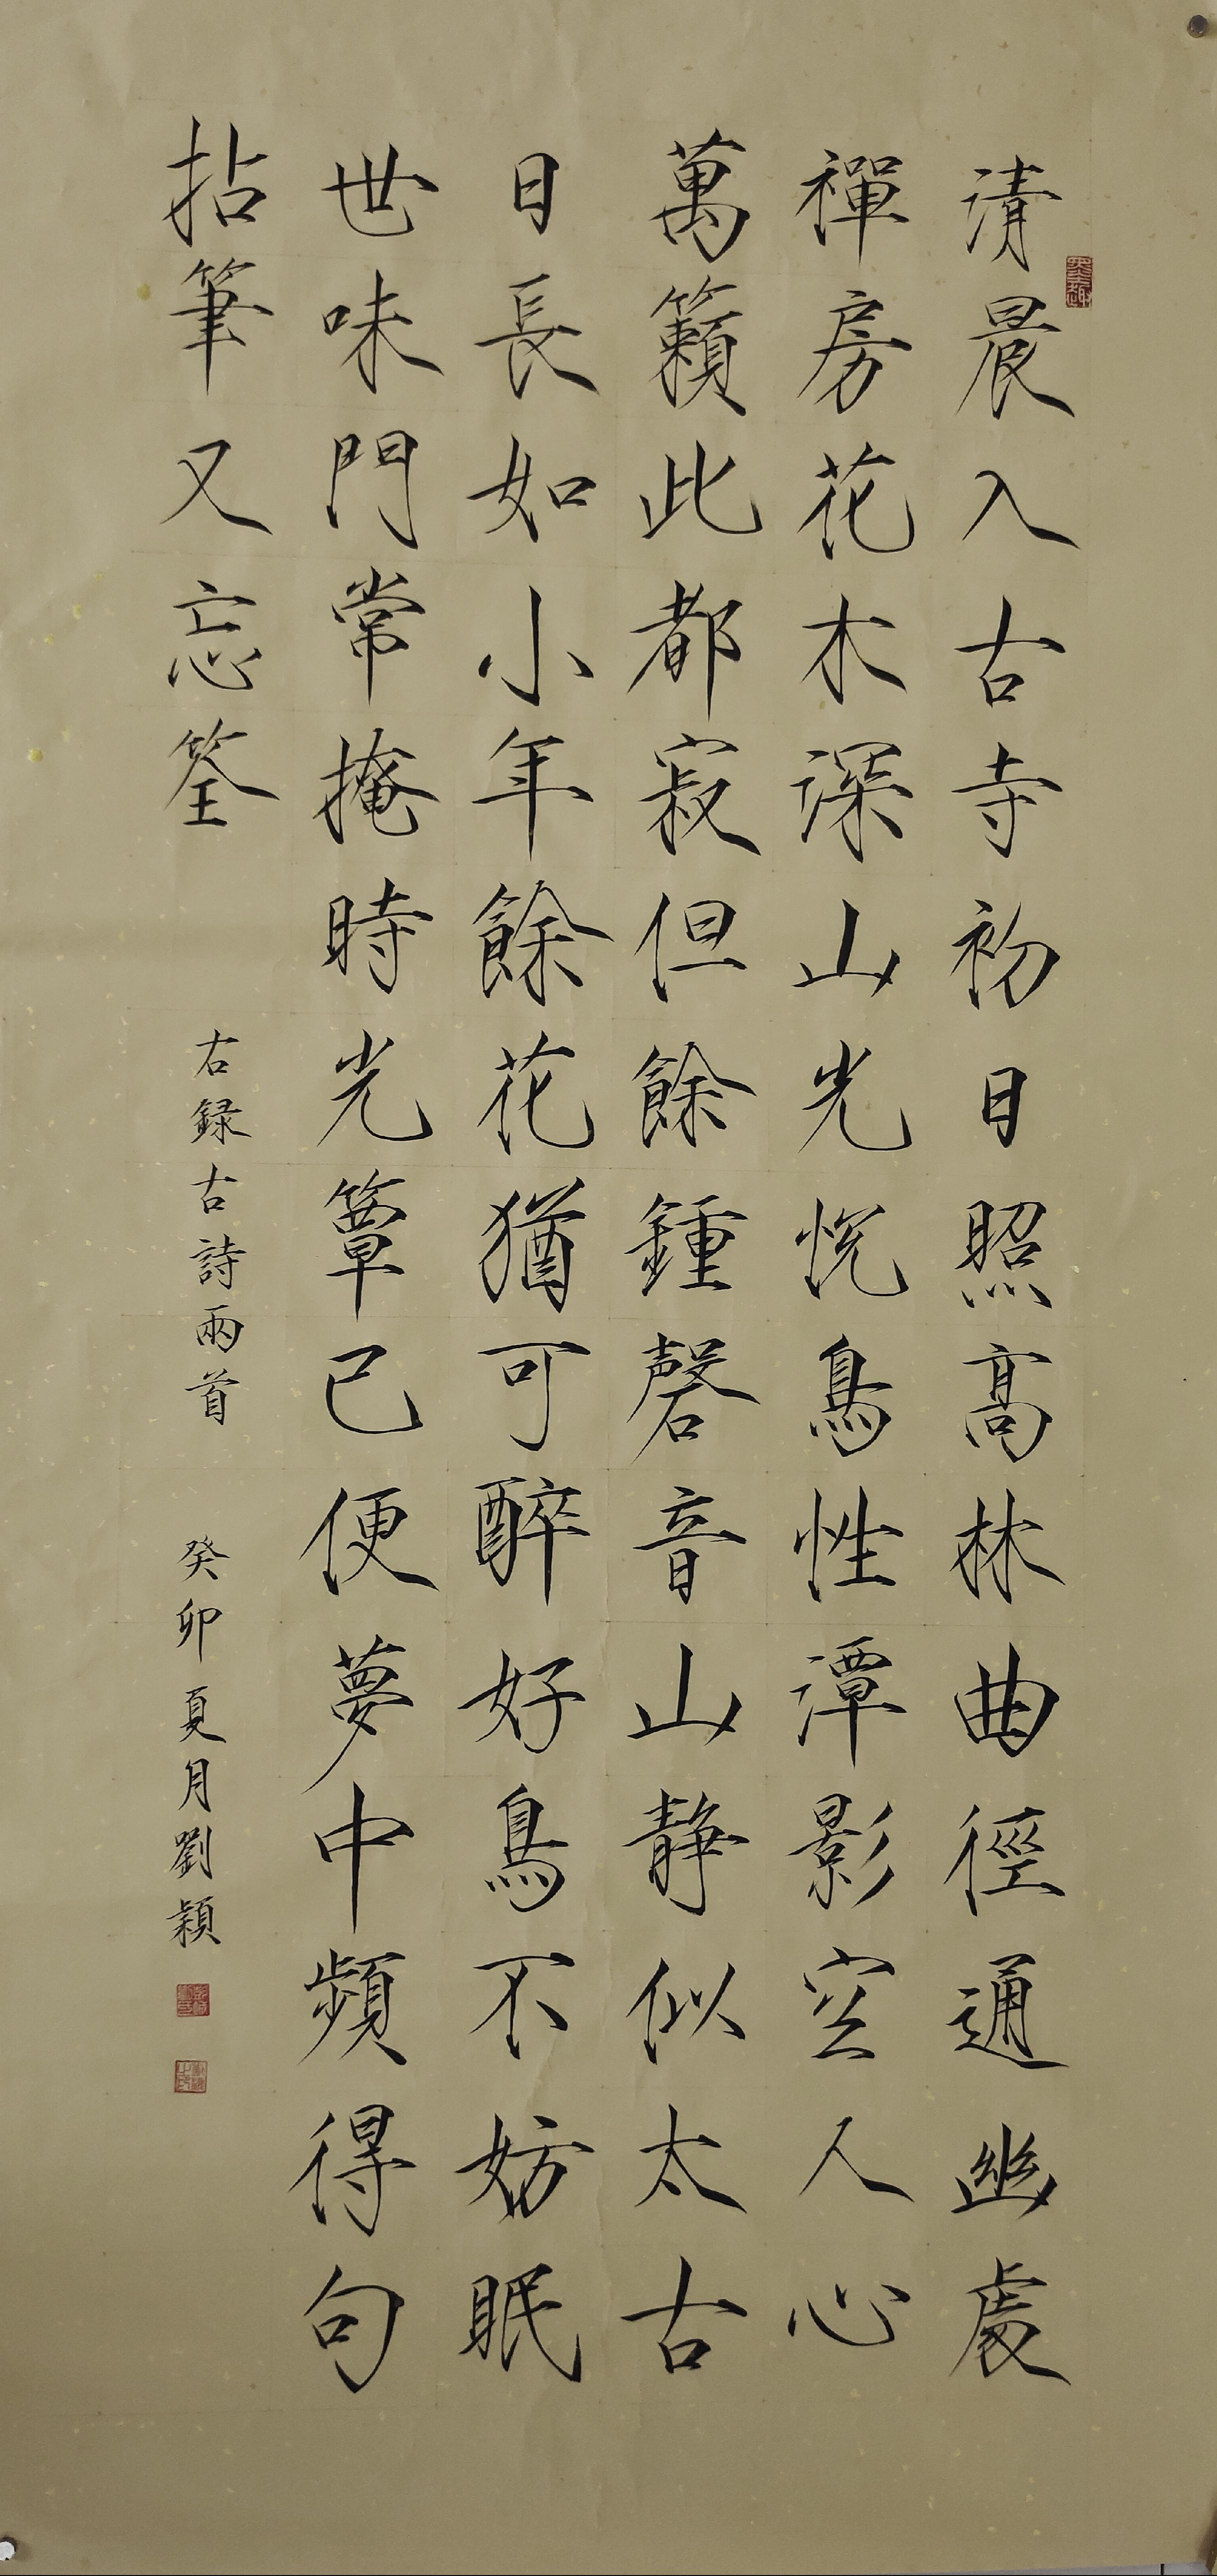 清晨入古寺初日照高林曲徑通幽處
禪房花木深山光悅鳥性潭影空人心
萬籟此都寂但餘鍾磬音山静似太古
日長如小年餘花猶可醉好鳥不妨眠
世味門常掩時光簟已便夢中頻得句
拈筆又忘筌
右録古詩兩首
癸卯夏月劉穎